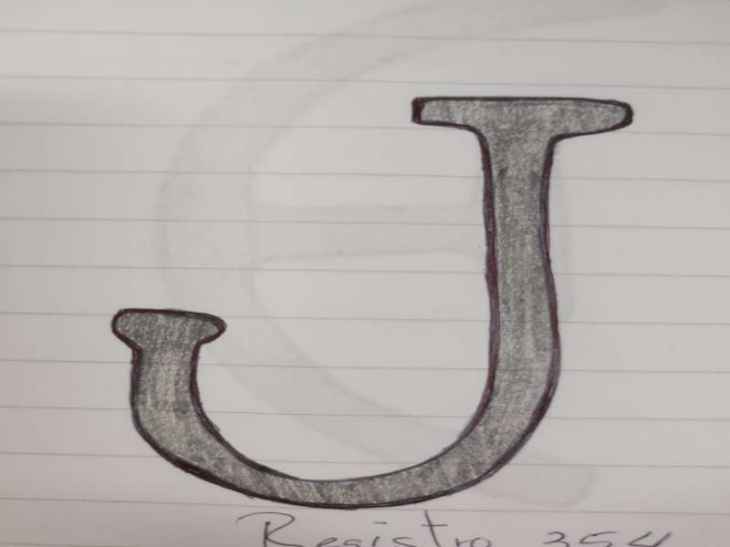 J
Registro 354